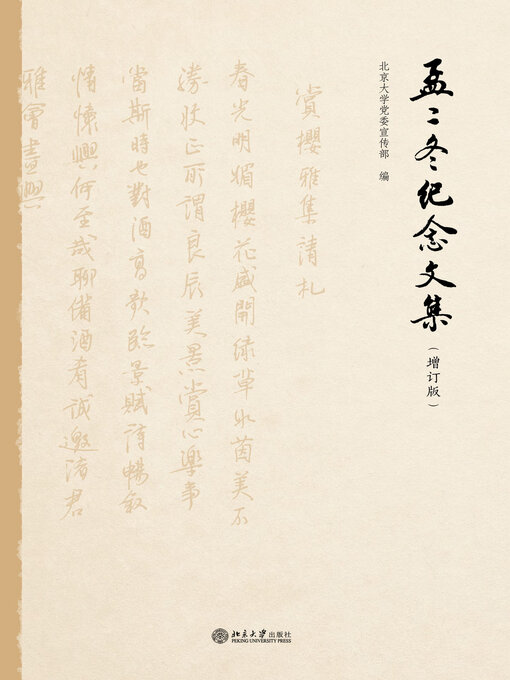 孟二冬纪念文集
(增订版)
北京大学党委宣传部 编
賞櫻雅集請札
春光明媚櫻花盛開綠草如茵美不
勝收正所謂良辰美景賞心樂事
當斯時也對酒高歌臨景賦詩暢叙
情懷興何至哉聊備酒肴誠邀諸君
雅會盡興
北京大学出版社
PEKING UNIVERSITY PRESS